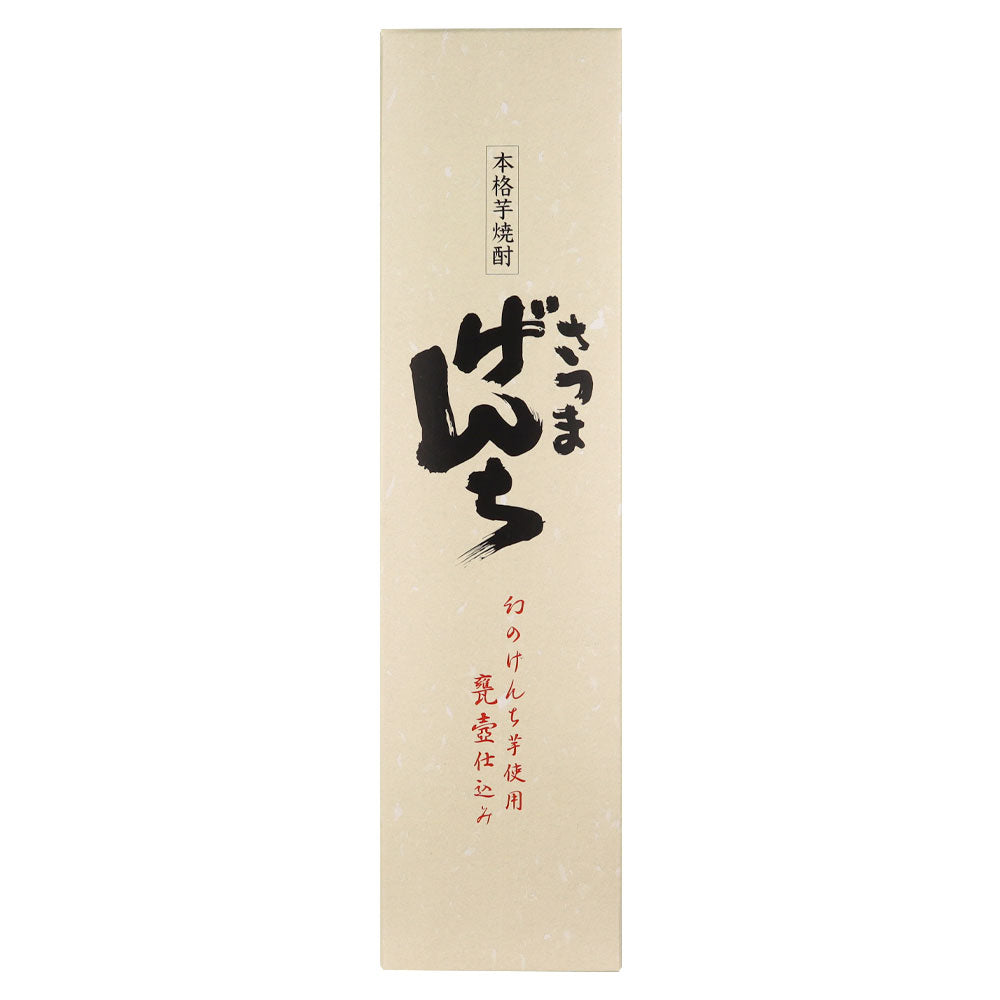 本格芋焼酎
さつま
げんち
幻のげんち芋使用
甕壺仕込み